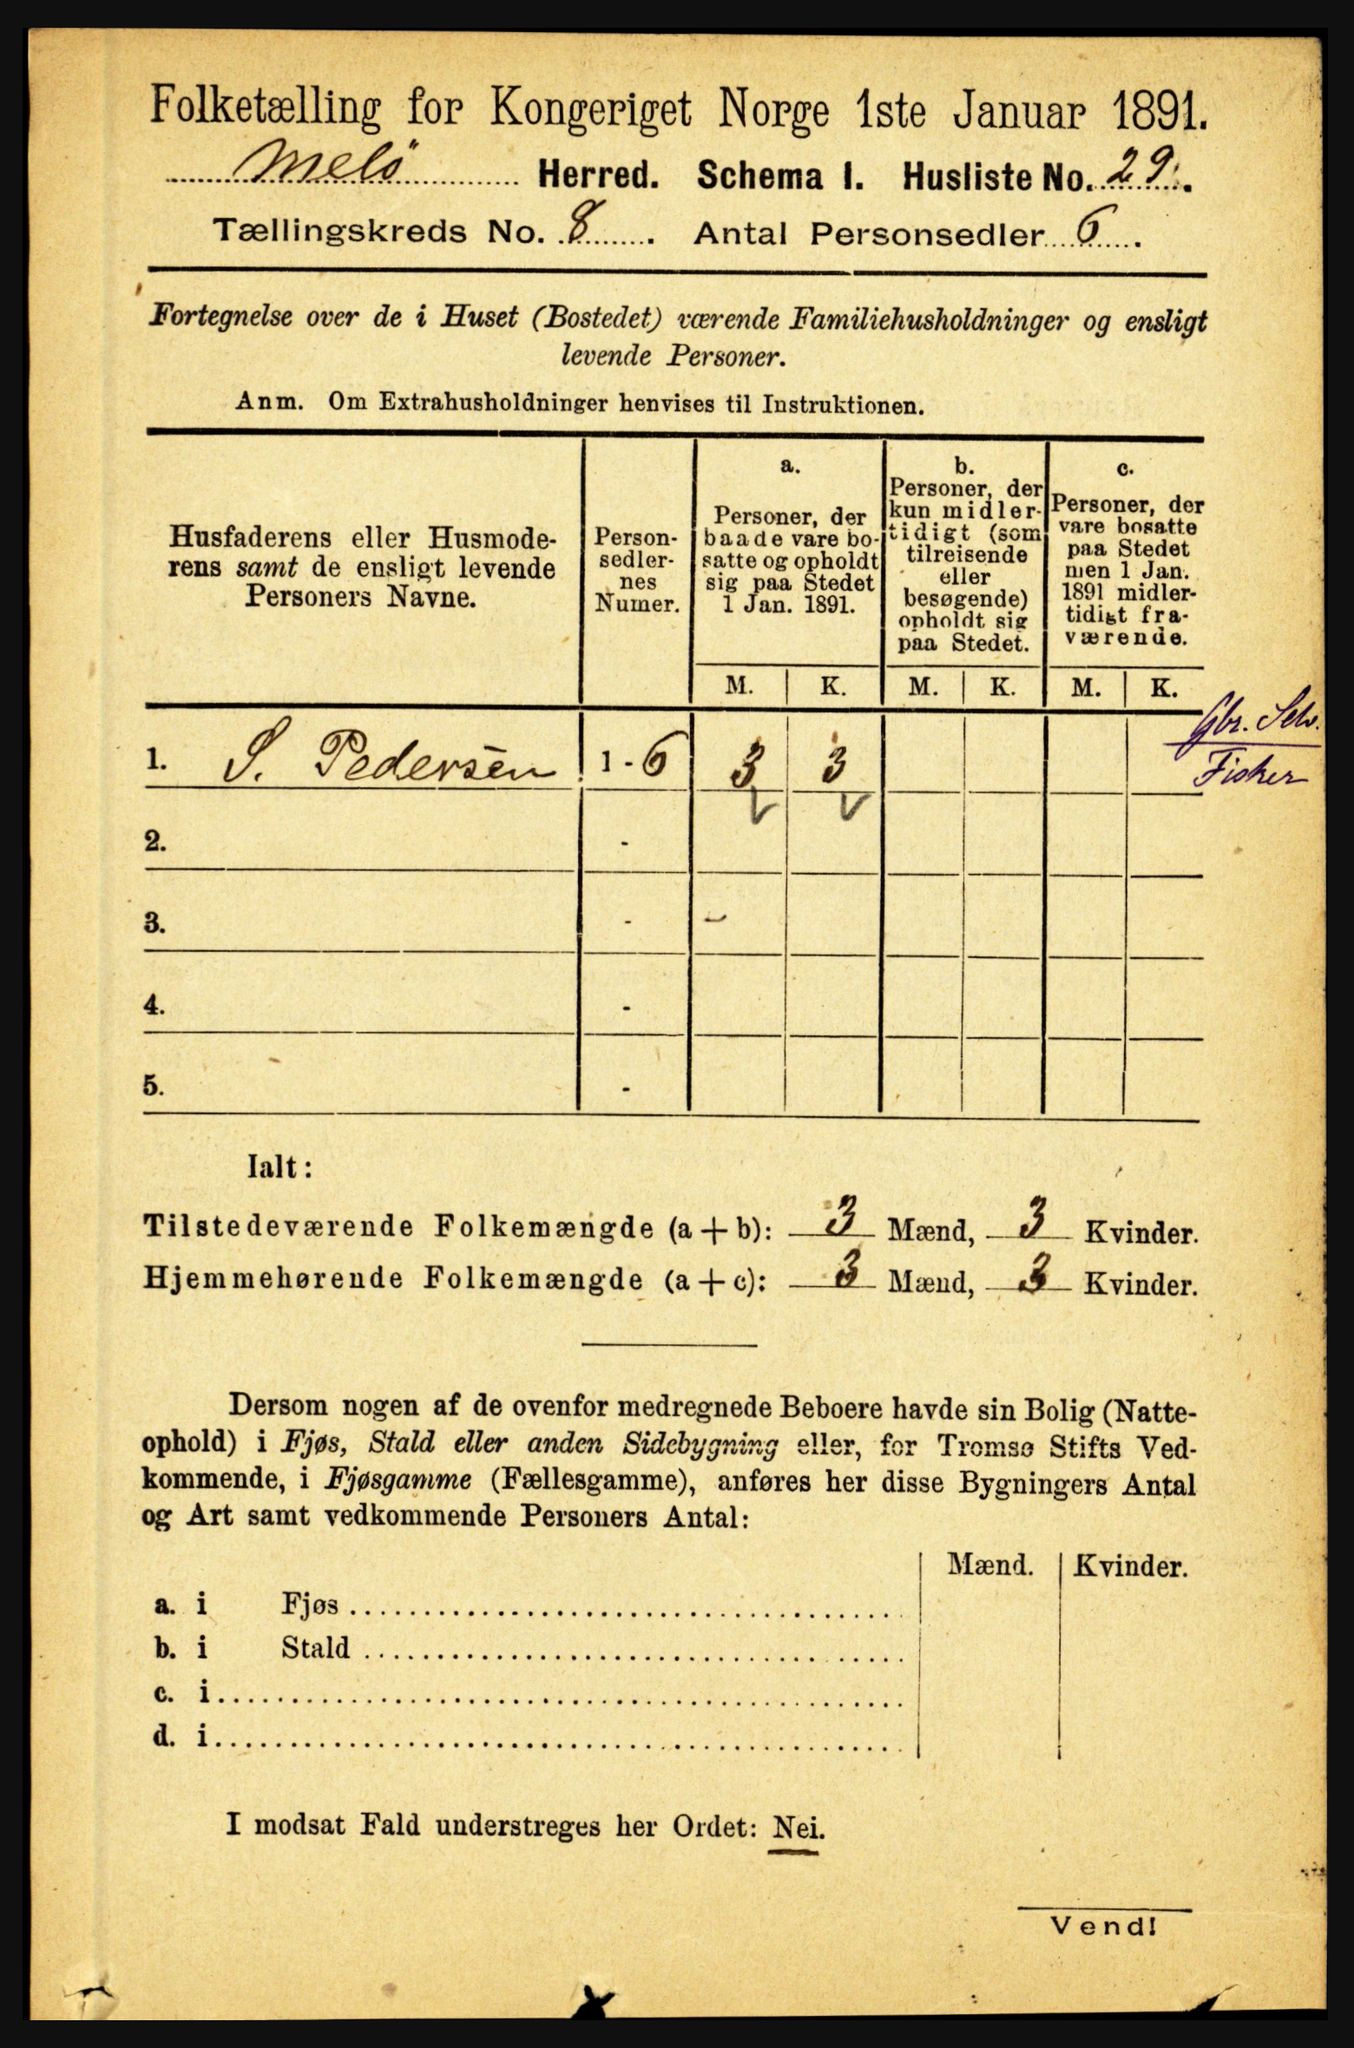 Folketælling for Kongeriget Norge 1ste Januar 1891.
Melö Herred. Schema I. Husliste No. 29.
Tællingskreds No. 8. Antal Personsedler 6.
Fortegnelse over de i Huset (Bostedet) værende Familiehusholdninger og ensligt
levende Personer.
Anm. Om Extrahusholdninger henvises til Instruktionen.
Husfaderens eller Husmode-
rens samt de ensligt levende
Personers Navne.
Person-
sedler-
nes
Numer.
a.
Personer, der
baade vare bo-
satte og opholdt
sig paa Stedet
1 Jan. 1891.
b.
Personer, der
kun midler-
tidigt (som
tilreisende
eller
besøgende)
opholdt sig
paa Stedet.
c.
Personer, der
vare bosatte
paa Stedet
men 1 Jan.
1891 midler-
tidigt fra-
værende.
M. K. M. K. M. K.
1. S. Pedersen 1 - 6 3 3
Gbr. Selv.
Fisker
2. -
3. - -
4. -
5. -
Ialt:
Tilstedeværende Folkemængde (a + b): 3 Mænd, 3 Kvinder.
Hjemmehørende Folkemængde (a + c): 3 Mænd, 3 Kvinder.
Dersom nogen af de ovenfor medregnede Beboere havde sin Bolig (Natte-
ophold) i Fjøs, Stald eller anden Sidebygning eller, for Tromsø Stifts Ved-
kommende, i Fjøsgamme (Fællesgamme), anføres her disse Bygningers Antal
og Art samt vedkommende Personers Antal:
Mænd. Kvinder.
a. i Fjøs
b. i Stald
c. i
d. i
I modsat Fald understreges her Ordet: Nei.
Vend!